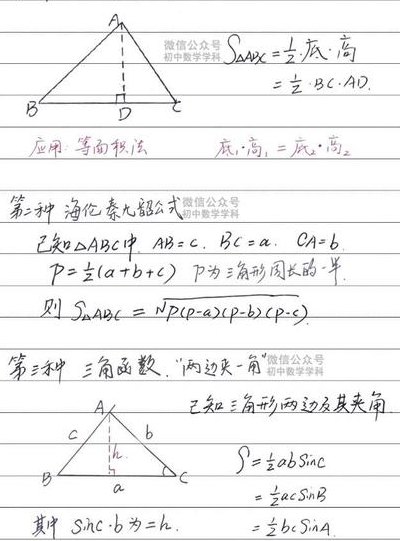 A
微信公众号
初中数学学科
S△ABC = ½·底·高
= ½·BC·AD.
B D C
应用: 等面积法 底₁·高₁ = 底₂·高₂
第二种 海伦秦九韶公式
微信公众号
初中数学学科
已知△ABC中. AB=c. BC=a. CA=b.
P=½(a+b+c) P为三角形周长的一半.
则 S△ABC = √P(P-a)(P-b)(P-c).
第三种 三角函数. "两边夹一角"
微信公众号
初中数学学科
已知三角形两边及其夹角.
A
c b
h
B a C
S=½abSinC
=½acSinB
=½bcSinA.
其中 SinC·b为=h.